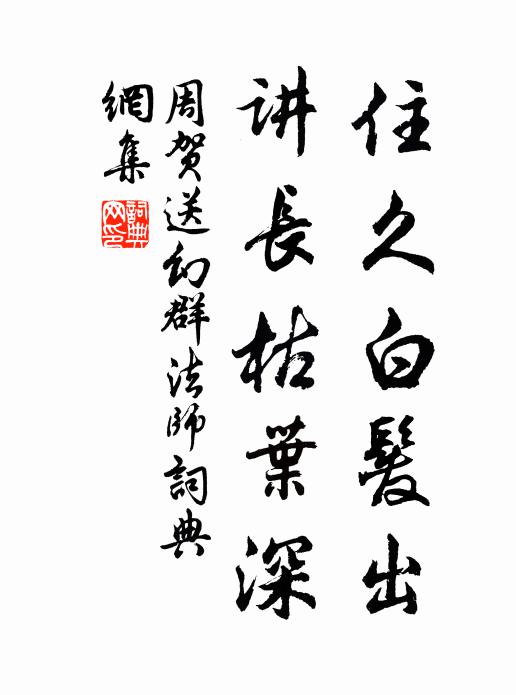 住久白髮出
讲長枯葉深
周贺送幻群法师詞典
網集
詞典网印